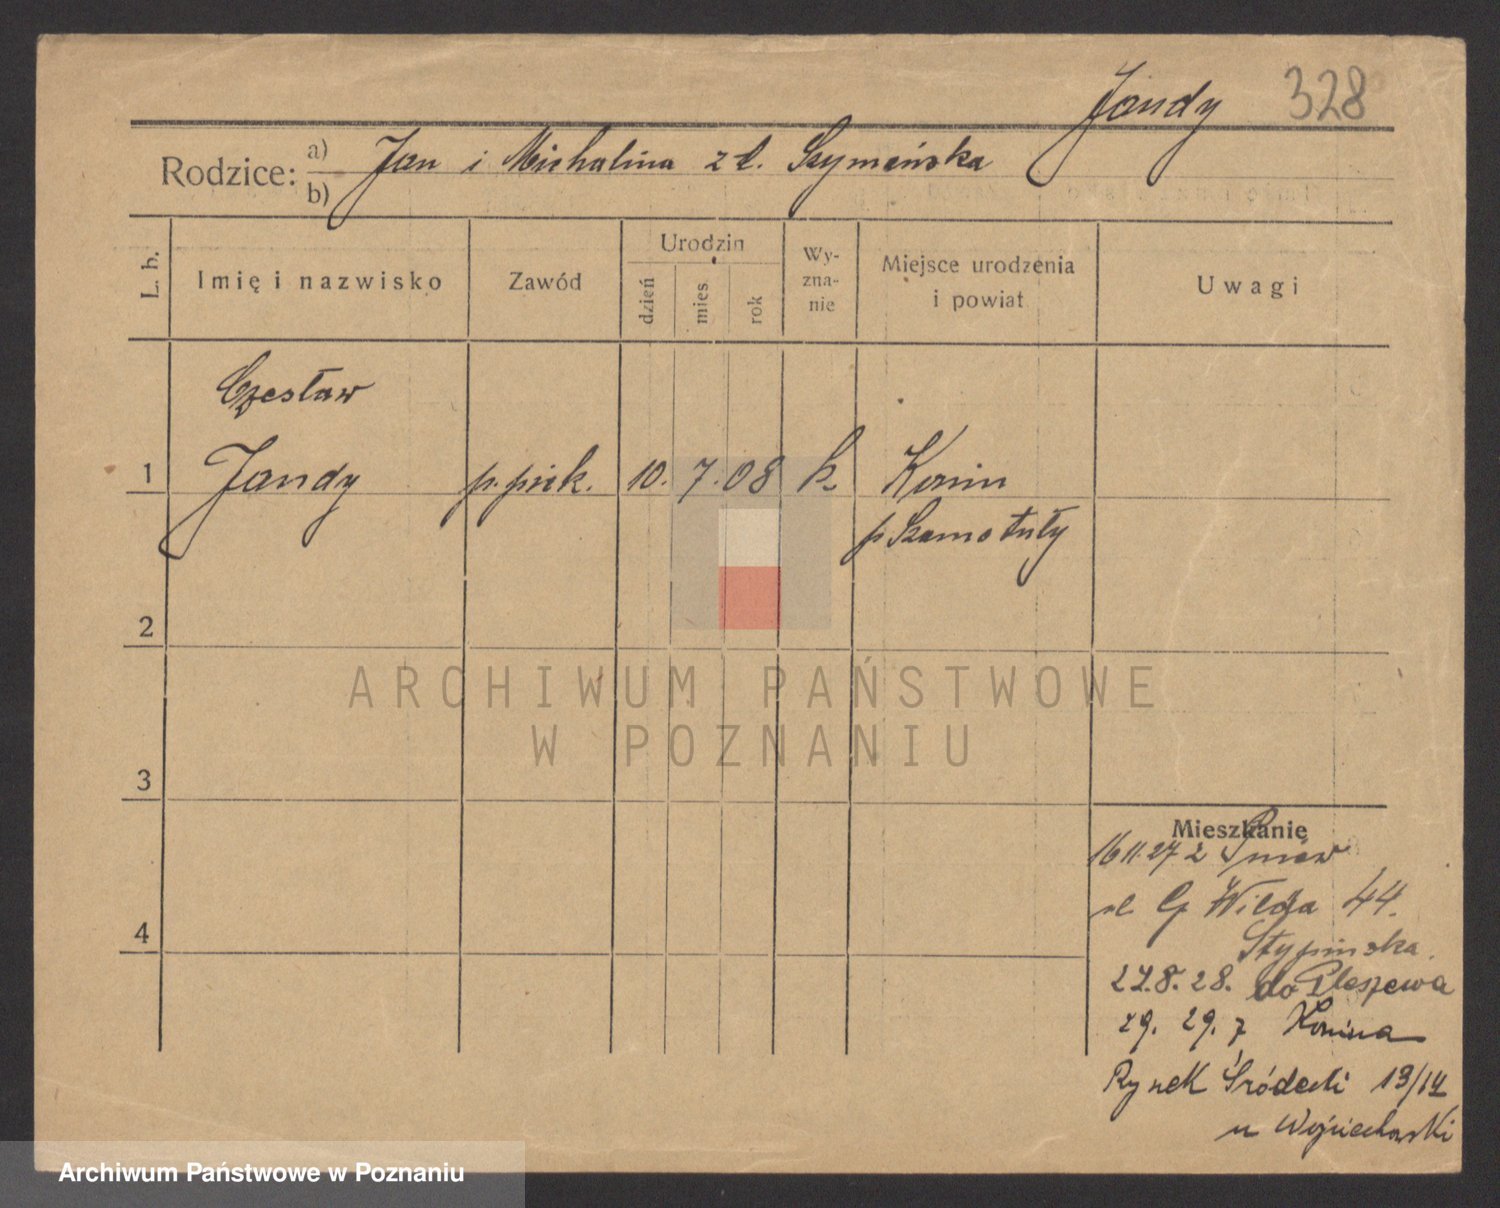 Jandy 328
Rodzice: a) Jan i Michalina z d. Szymańska
b)
L. b. Imię i nazwisko Zawód Urodzin dzień mies. rok Wy-zna-nie Miejsce urodzenia i powiat Uwagi
Czesław
1 Jandy p. piek. 10. 7. 08 k Konin
p Szamotuły
2
ARCHIWUM PAŃSTWOWE
W POZNANIU
3
Mieszkanie
16 11. 27 z Pniew
G Wilda 44.
4
27.8. 28. do Pleszewa
29. z Konina
Rynek Śródecki 13/14
u Wojciechowski
Archiwum Państwowe w Poznaniu